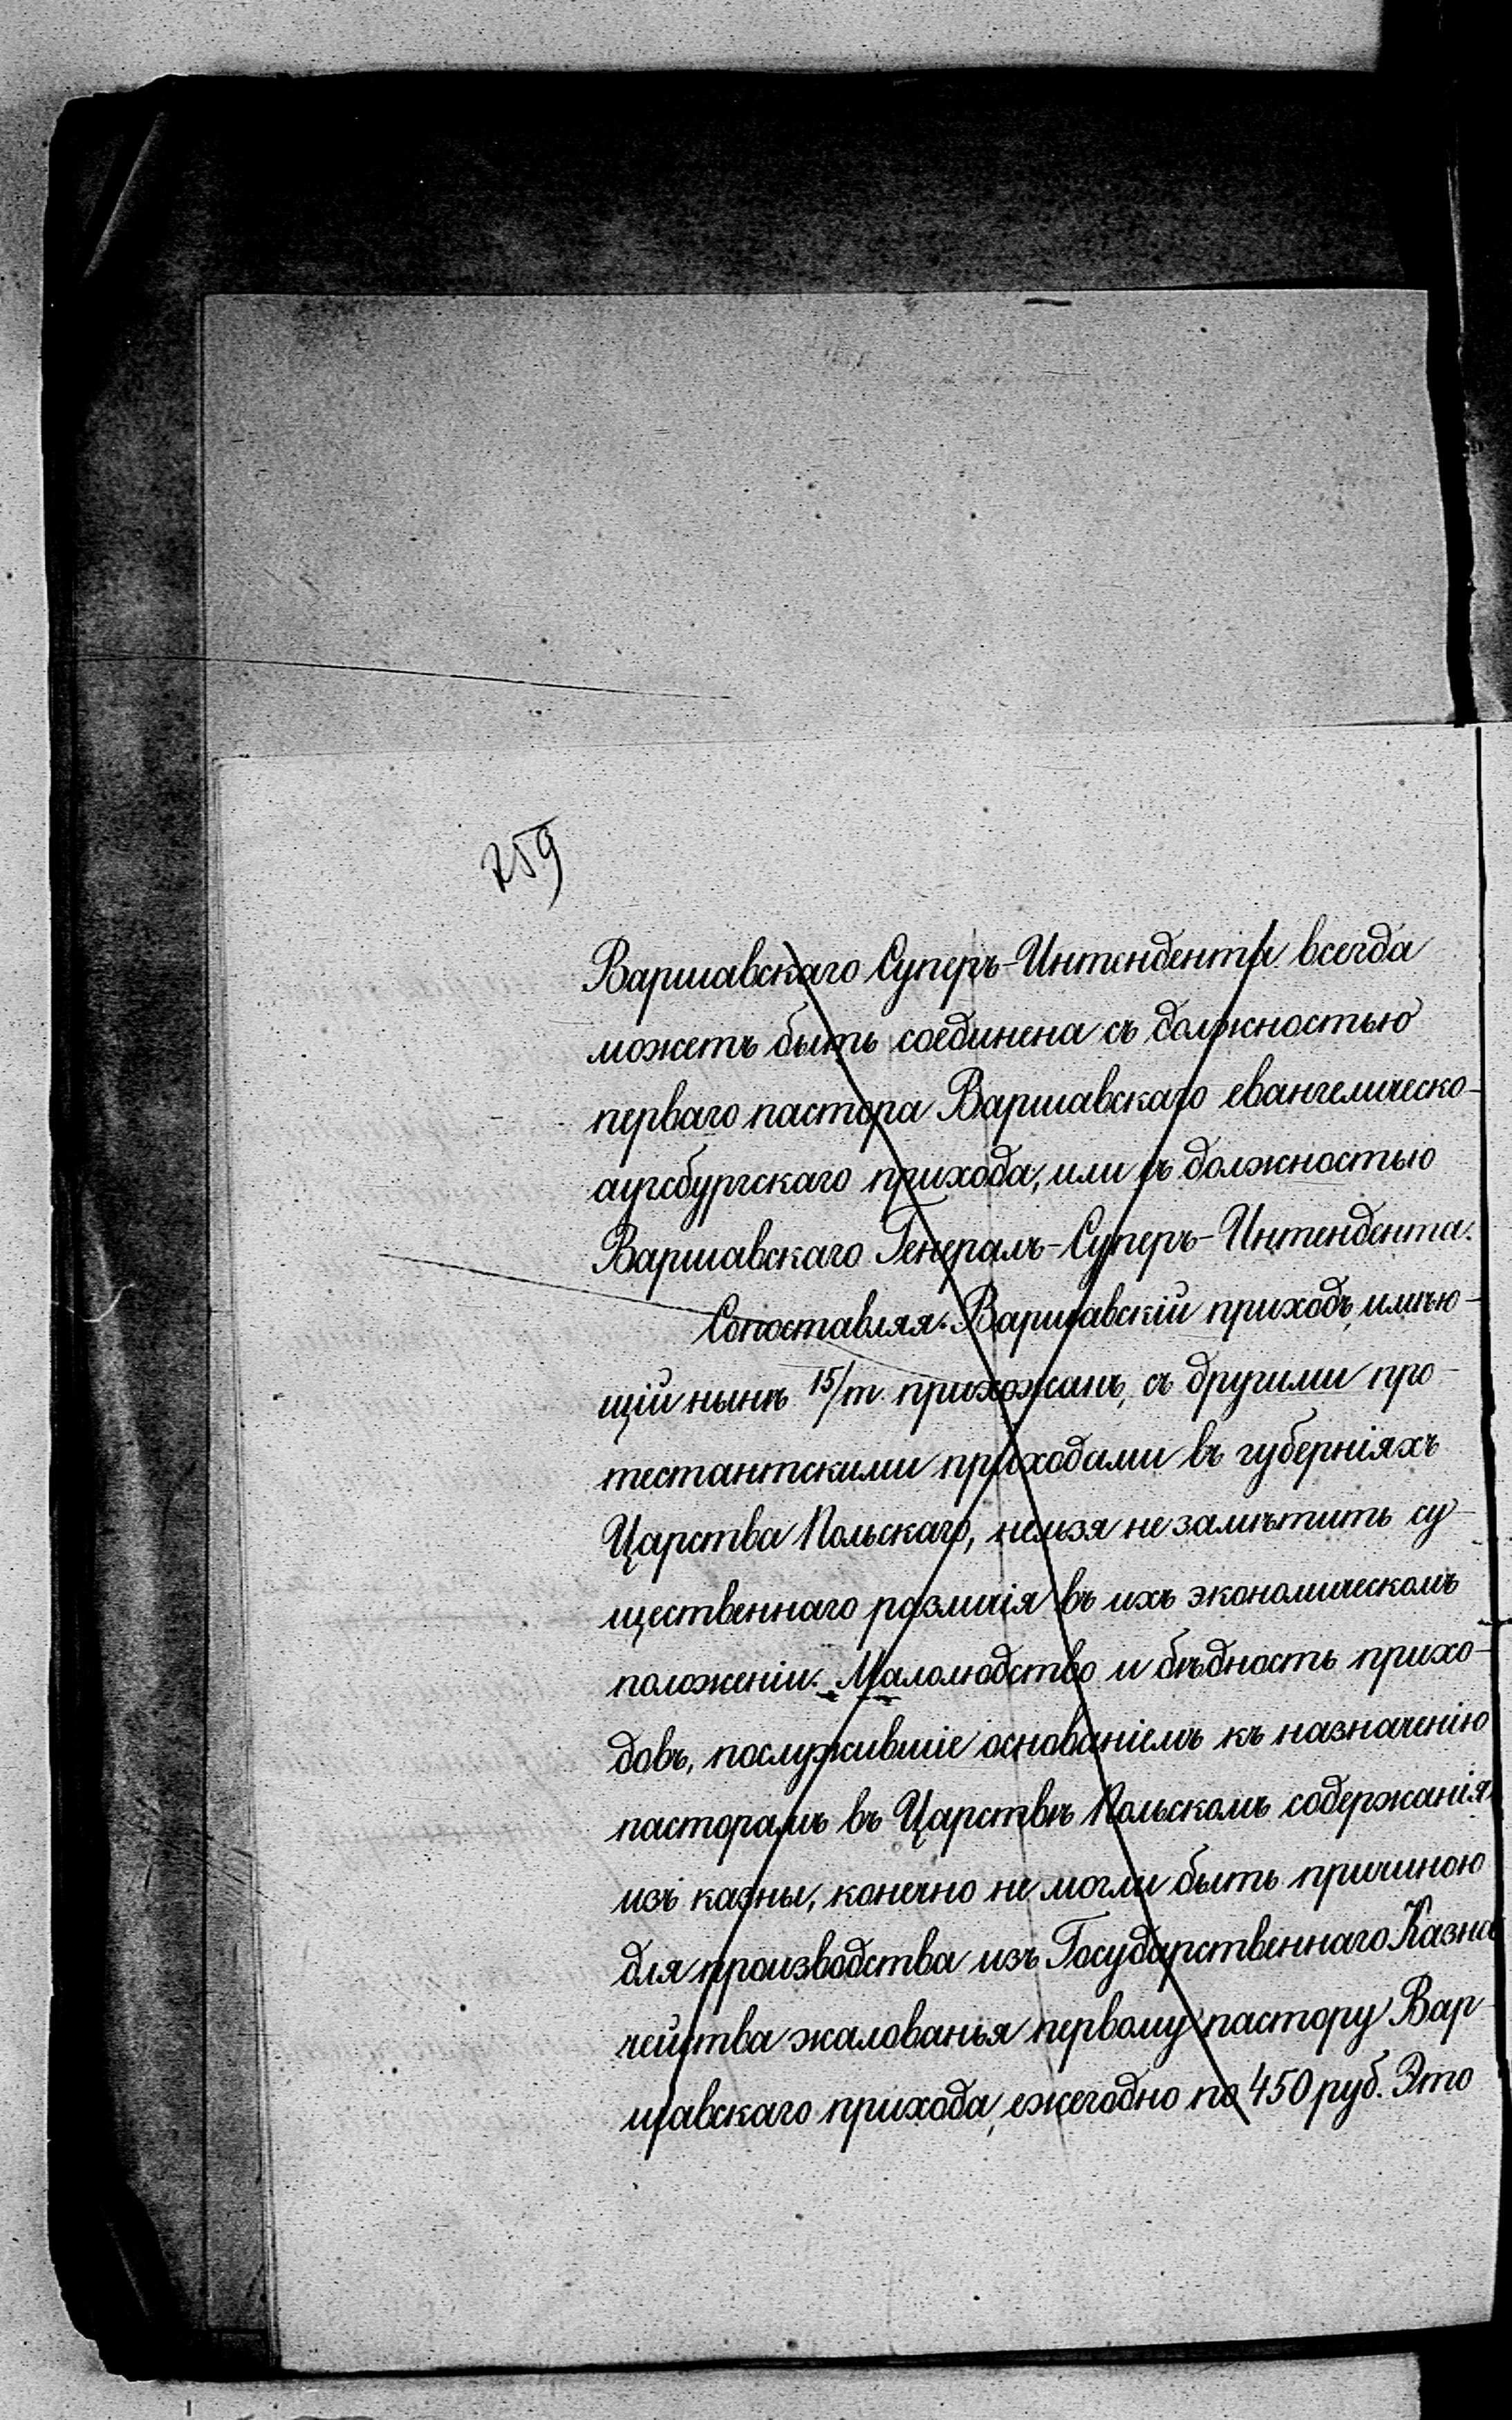 259
Варшавскаго Суперъ-Интендента всегда
можетъ быть соединена съ должностью
перваго пастора Варшавскаго евангелическо-
аугсбургскаго прихода, или съ должностью
Варшавскаго Генералъ-Суперъ-Интендента.
Сопоставляя Варшавскій приходъ, имѣю-
щій нынѣ 15/т. прихожанъ, съ другими про-
тестантскими приходами въ губерніяхъ
Царства Польскаго, нельзя не замѣтить су-
щественнаго различія въ ихъ экономическомъ
положеніи. Малолюдство и бѣдность прихо-
довъ, послужившіе основаніемъ къ назначенію
пасторамъ въ Царствѣ Польскомъ содержанія
изъ казны, конечно не могли быть причиною
для производства изъ Государственнаго Казна
чейства жалованья первому пастору Вар-
шавскаго прихода, ежегодно по 450 руб. Это